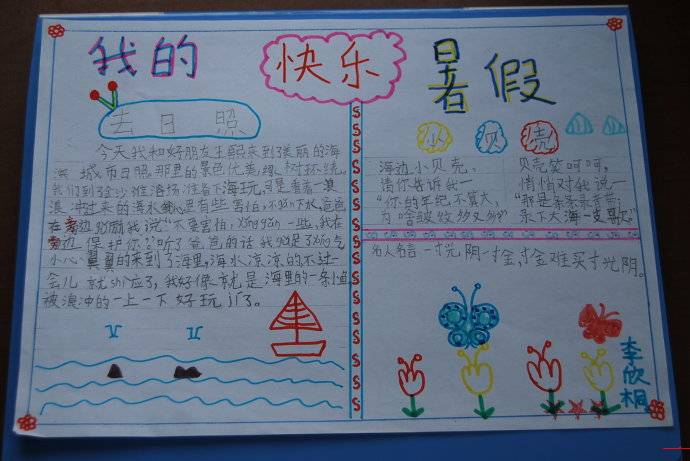 我的 快乐 暑假
去日照
今天我和好朋友王熙来到了美丽的海
滨城市日照那里的景色优美,绿树环绕。
我们到了金沙滩浴场准备下海玩,可是看着一浪
浪冲过来的海水我心里有些害怕,不敢下水,爸爸
在旁边鼓励我说“不要害怕,yǒng gǎn一些,我在
旁边保护你”听了爸爸的话我鼓足了yǒng气
小心翼翼的来到了海里,海水凉凉的不过一
会儿就shì应了,我好像就是海里的一条鱼
被浪冲的一上一下好玩jí了。
小贝壳
海边小贝壳,
请你告诉我一
“你的年纪不算大,
为啥皱纹
贝壳笑呵呵,
悄悄对我说一
“那是
永下大海一支歌”
名人名言 一寸光阴一寸金,寸金难买寸光阴。
李欣桐